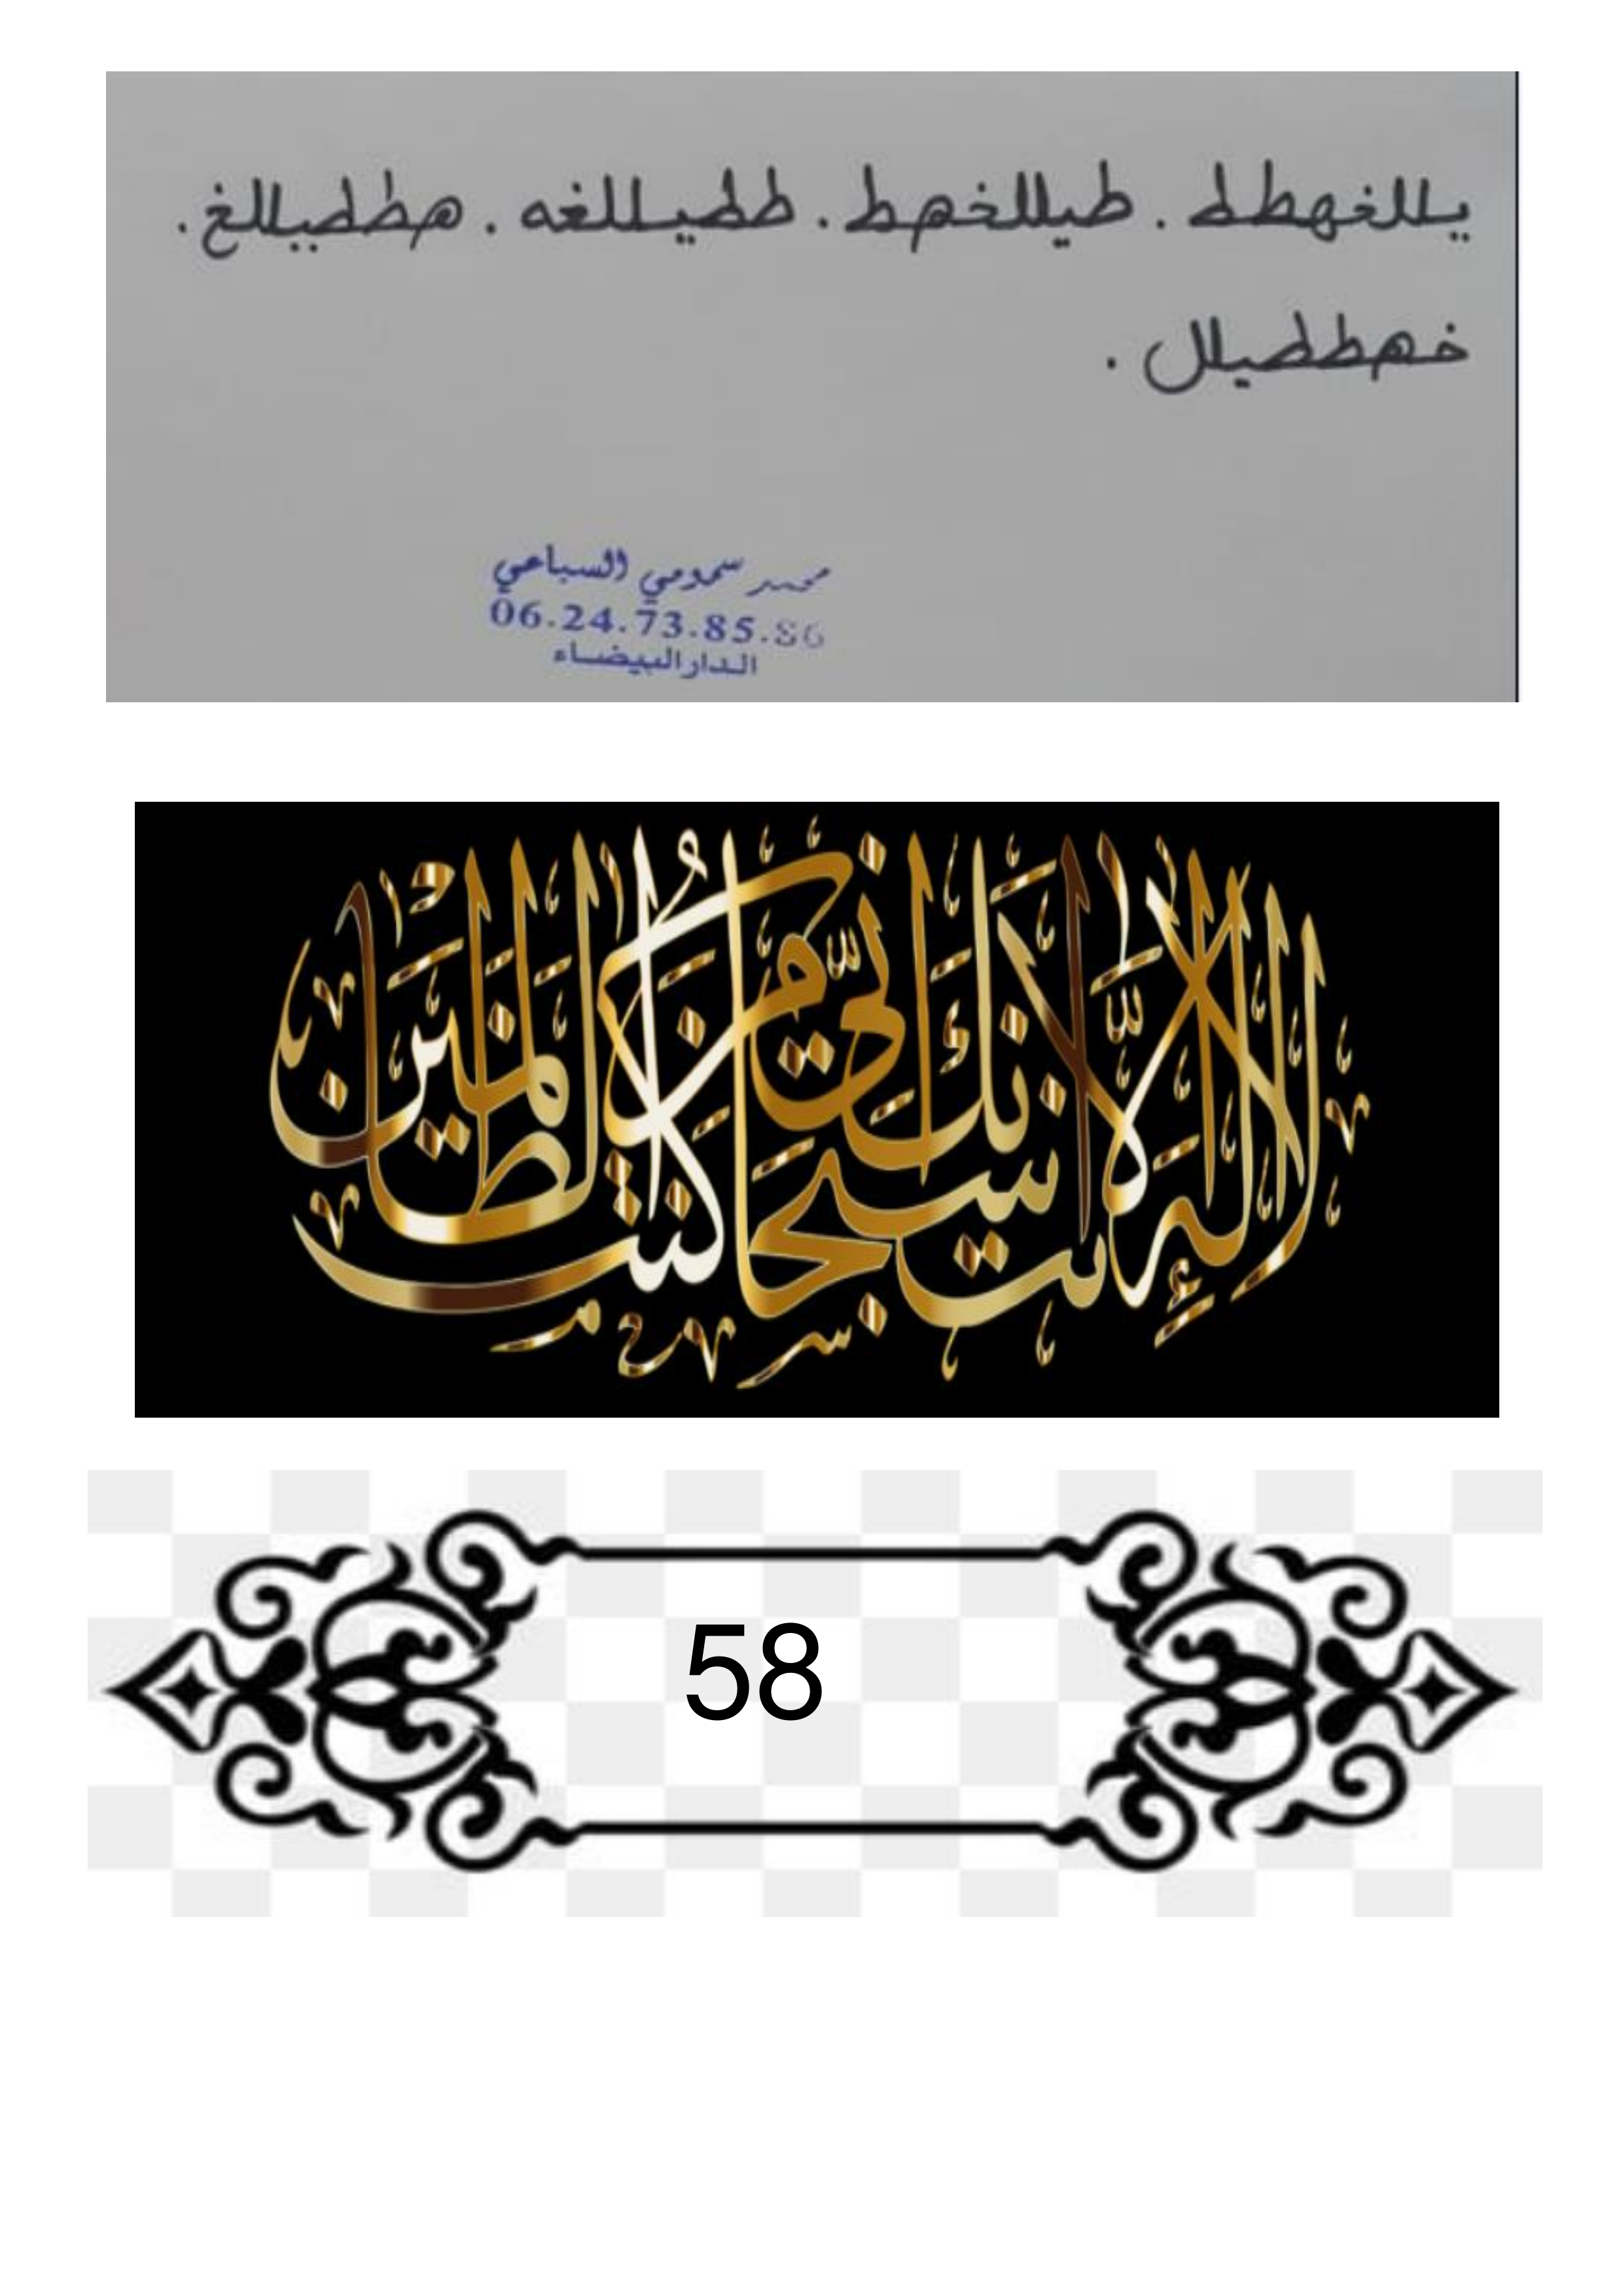 يللغهطط . طيللخهط . ططيللغه . هططيللغ .
خهططيلل .
سمومي السباعي
06.24.73.85.86
الدار البيضاء
لَا إِلَٰهَ إِلَّا أَنْتَ سُبْحَانَكَ إِنِّي كُنْتُ مِنَ الظَّالِمِينَ
58